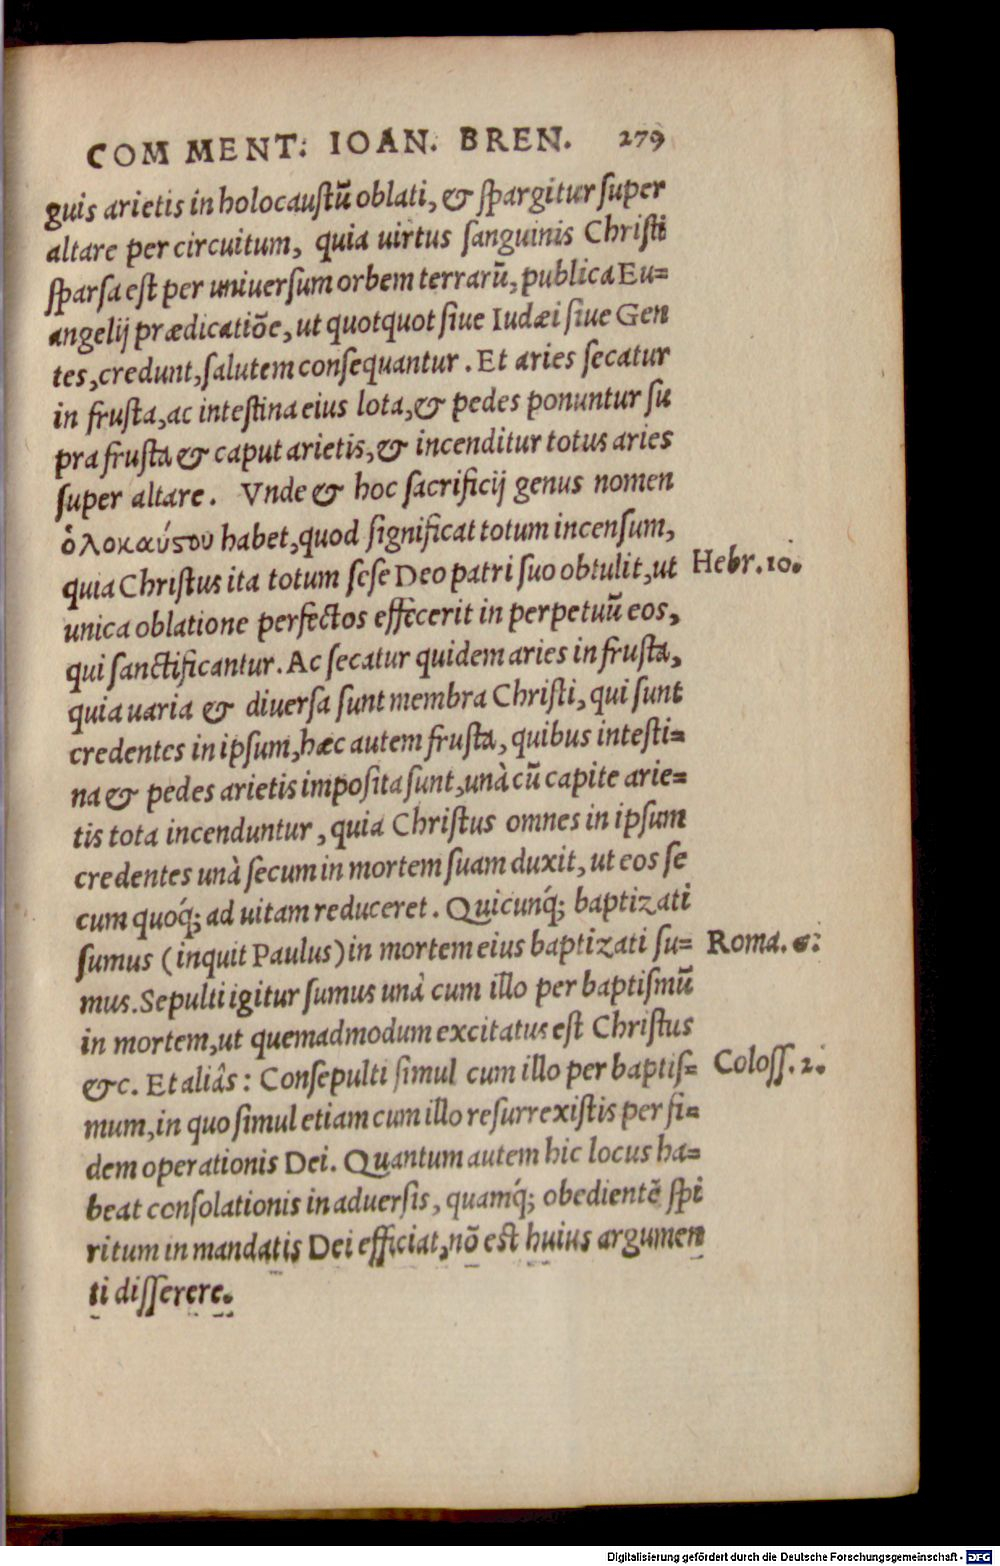 COMMENT. IOAN. BREN. 279
guis arietis in holocaustũ oblati, & spargitur super
altare per circuitum, quia uirtus sanguinis Christi
sparsa est per uniuersum orbem terrarũ, publica Eu=
angelij prædicatiõe, ut quotquot siue Iudæi siue Gen
tes, credunt, salutem consequantur. Et aries secatur
in frusta, ac intestina eius lota, & pedes ponuntur su
pra frusta & caput arietis, & incenditur totus aries
super altare. Vnde & hoc sacrificij genus nomen
ὁλοκαύςου habet, quod significat totum incensum,
quia Christus ita totum sese Deo patri suo obtulit, ut Hebr. 10.
unica oblatione perfectos effecerit in perpetuũ eos,
qui sanctificantur. Ac secatur quidem aries in frusta,
quia uaria & diuersa sunt membra Christi, qui sunt
credentes in ipsum, hæc autem frusta, quibus intesti=
na & pedes arietis imposita sunt, unà cũ capite arie=
tis tota incenduntur, quia Christus omnes in ipsum
credentes unà secum in mortem suam duxit, ut eos se
cum quoq́; ad uitam reduceret. Quicunq́; baptizati
sumus (inquit Paulus) in mortem eius baptizati su= Roma. 6.
mus. Sepulti igitur sumus unà cum illo per baptismũ
in mortem, ut quemadmodum excitatus est Christus
&c. Et aliâs: Consepulti simul cum illo per baptis= Coloss. 2.
mum, in quo simul etiam cum illo resurrexistis per fi=
dem operationis Dei. Quantum autem hic locus ha=
beat consolationis in aduersis, quamq́; obedientẽ spi
ritum in mandatis Dei efficiat, nõ est huius argumen
ti disserere.
Digitalisierung gefördert durch die Deutsche Forschungsgemeinschaft - DFG